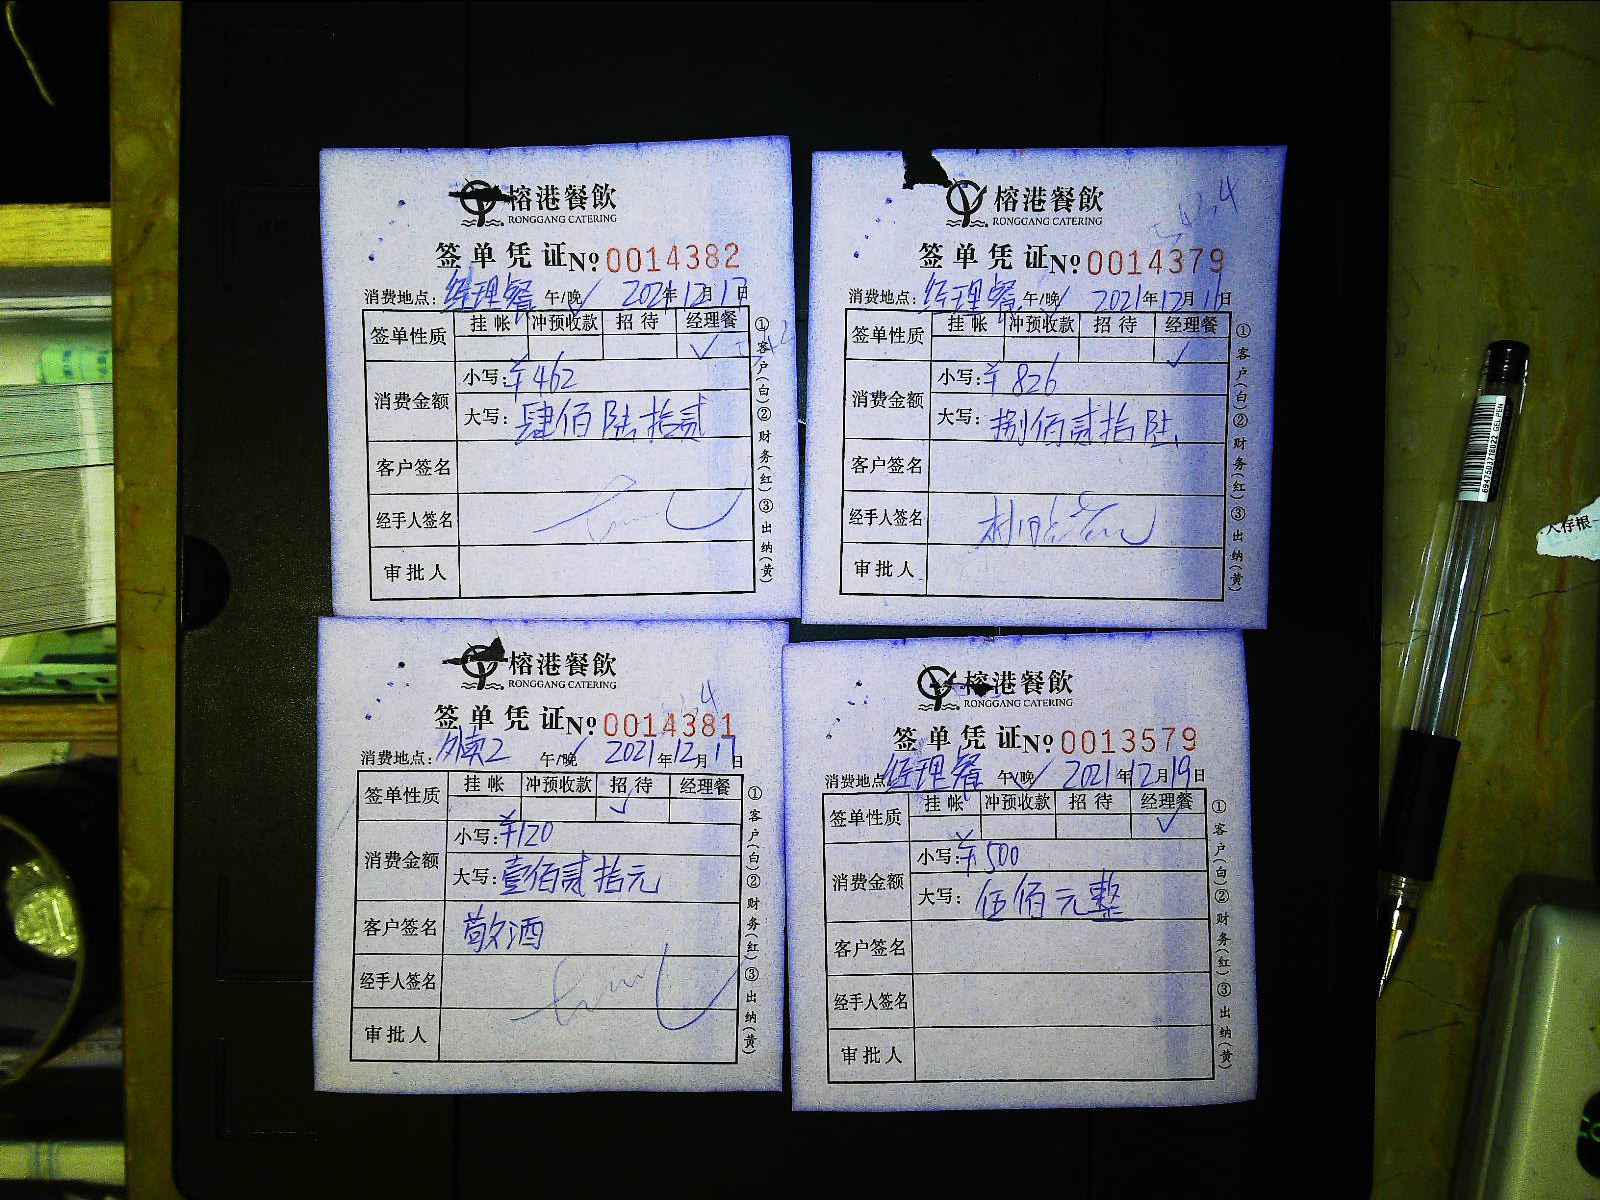 榕港餐飲
RONGGANG CATERING
签单凭证№ 0014382
消费地点：经理餐 午/晚✓ 2021年12月17日
签单性质 挂帐 冲预收款 招待 经理餐
✓
消费金额 小写：￥462
大写：肆佰陆拾贰
客户签名
经手人签名
审批人
①客户(白)②财务(红)③出纳(黄)
榕港餐飲
RONGGANG CATERING
签单凭证№ 0014379
消费地点：经理餐 午/晚✓ 2021年12月11日
签单性质 挂帐 冲预收款 招待 经理餐
✓
消费金额 小写：￥826
大写：捌佰贰拾陆
客户签名
经手人签名
审批人
①客户(白)②财务(红)③出纳(黄)
榕港餐飲
RONGGANG CATERING
签单凭证№ 0014381
消费地点：外卖2 午/晚✓ 2021年12月17日
签单性质 挂帐 冲预收款 招待 经理餐
✓
消费金额 小写：￥120
大写：壹佰贰拾元
客户签名 敬酒
经手人签名
审批人
①客户(白)②财务(红)③出纳(黄)
榕港餐飲
RONGGANG CATERING
签单凭证№ 0013579
消费地点：经理餐 午/晚✓ 2021年12月19日
签单性质 挂帐 冲预收款 招待 经理餐
✓
消费金额 小写：￥500
大写：伍佰元整
客户签名
经手人签名
审批人
①客户(白)②财务(红)③出纳(黄)
GEL PEN
人存根